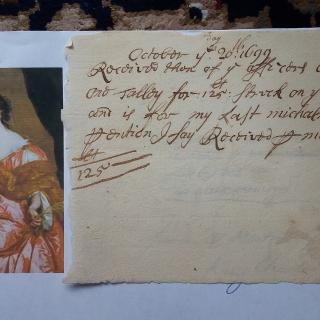 day
October yͤ 20th 1699
Received then of yͤ officers
one Talley for 125£: struck on y
and is for my Last michal
pention I say Received ꝑ m
£
125